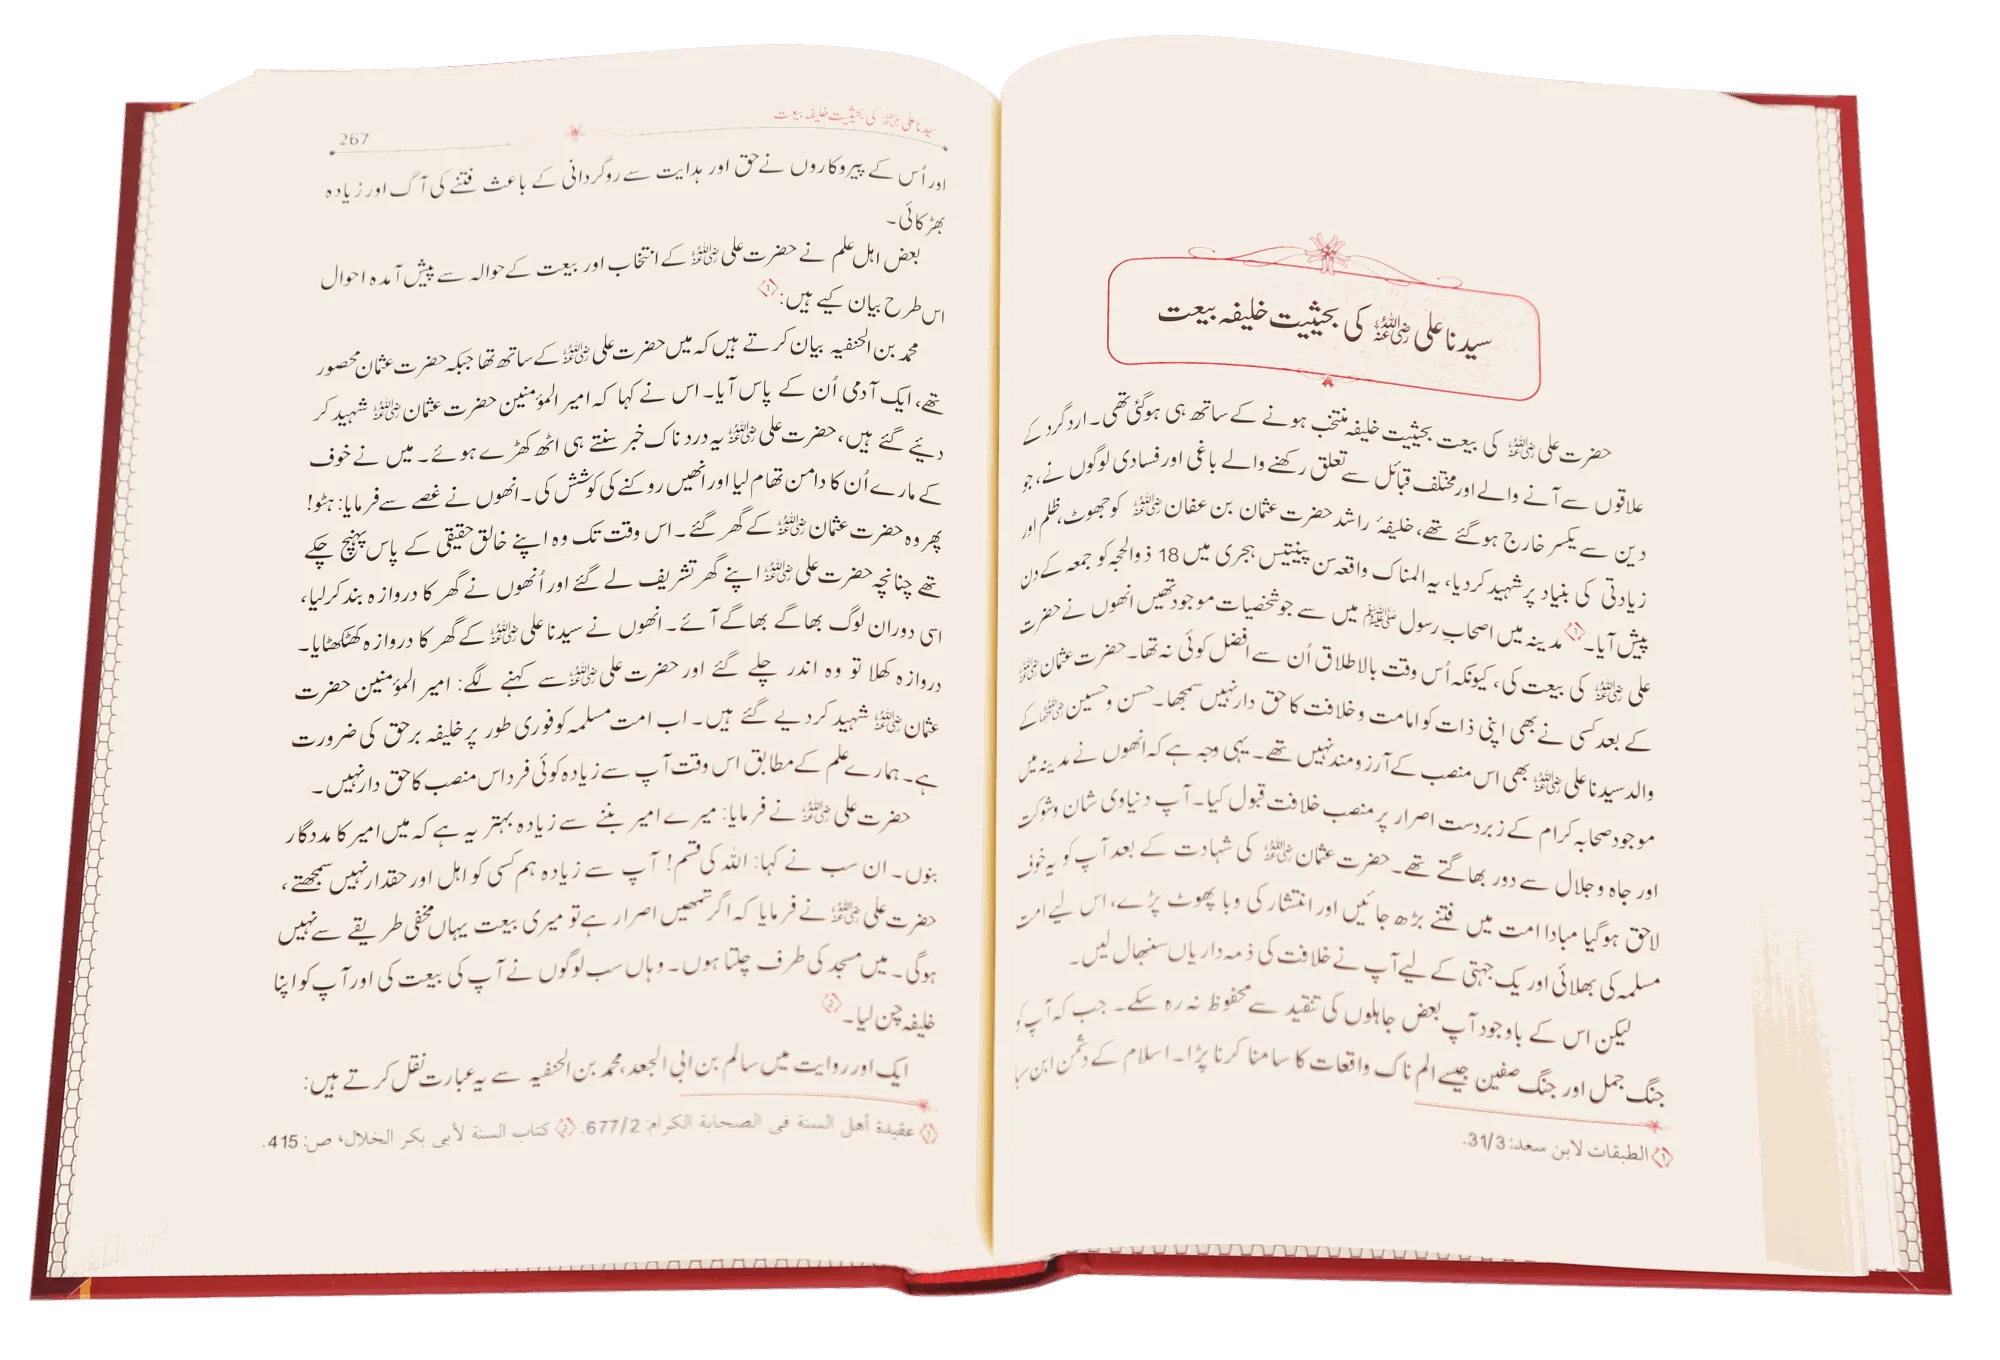 سیدنا علی رضی اللہ عنہ کی بحیثیت خلیفہ بیعت
حضرت علی رضی اللہ عنہ کی بیعت بحیثیت خلیفہ منتخب ہونے کے ساتھ ہی ہوگئی تھی۔ اردگرد کے
علاقوں سے آنے والے اور مختلف قبائل سے تعلق رکھنے والے باغی اور فسادی لوگوں نے، جو
دین سے یکسر خارج ہوگئے تھے، خلیفۂ راشد حضرت عثمان بن عفان رضی اللہ عنہ کو جھوٹ، ظلم اور
زیادتی کی بنیاد پر شہید کردیا، یہ المناک واقعہ سن پینتیس ہجری میں 18 ذوالحجہ کو جمعہ کے دن
پیش آیا۔ ① مدینہ میں اصحابِ رسول ﷺ میں سے جو شخصیات موجود تھیں انھوں نے حضرت
علی رضی اللہ عنہ کی بیعت کی، کیونکہ اُس وقت بالاطلاق اُن سے افضل کوئی نہ تھا۔ حضرت عثمان رضی اللہ عنہ
کے بعد کسی نے بھی اپنی ذات کو امامت و خلافت کا حق دار نہیں سمجھا۔ حسن و حسین رضی اللہ عنہما کے
والد سیدنا علی رضی اللہ عنہ بھی اس منصب کے آرزومند نہیں تھے۔ یہی وجہ ہے کہ انھوں نے مدینہ میں
موجود صحابہ کرام کے زبردست اصرار پر منصب خلافت قبول کیا۔ آپ دنیاوی شان و شوکت
اور جاہ و جلال سے دور بھاگتے تھے۔ حضرت عثمان رضی اللہ عنہ کی شہادت کے بعد آپ کو یہ خوف
لاحق ہوگیا مبادا امت میں فتنے بڑھ جائیں اور انتشار کی وبا پھوٹ پڑے، اس لیے امت
مسلمہ کی بھلائی اور یک جہتی کے لیے آپ نے خلافت کی ذمہ داریاں سنبھال لیں۔
لیکن اس کے باوجود آپ بعض جاہلوں کی تنقید سے محفوظ نہ رہ سکے۔ جب کہ آپ کو
جنگ جمل اور جنگ صفین جیسے الم ناک واقعات کا سامنا کرنا پڑا۔ اسلام کے دشمن ابن سبا
① الطبقات لابن سعد: 31/3.
سیدنا علی رضی اللہ عنہ کی بحیثیت خلیفہ بیعت
267
اور اُس کے پیروکاروں نے حق اور ہدایت سے روگردانی کے باعث فتنے کی آگ اور زیادہ
بھڑکائی۔
بعض اہل علم نے حضرت علی رضی اللہ عنہ کے انتخاب اور بیعت کے حوالہ سے پیش آمدہ احوال
اس طرح بیان کیے ہیں: ①
محمد بن الحنفیہ بیان کرتے ہیں کہ میں حضرت علی رضی اللہ عنہ کے ساتھ تھا جبکہ حضرت عثمان محصور
تھے، ایک آدمی اُن کے پاس آیا۔ اس نے کہا کہ امیر المؤمنین حضرت عثمان رضی اللہ عنہ شہید کر
دیئے گئے ہیں، حضرت علی رضی اللہ عنہ یہ درد ناک خبر سنتے ہی اٹھ کھڑے ہوئے۔ میں نے خوف
کے مارے اُن کا دامن تھام لیا اور انھیں روکنے کی کوشش کی۔ انھوں نے غصے سے فرمایا: ہٹو!
پھر وہ حضرت عثمان رضی اللہ عنہ کے گھر گئے۔ اس وقت تک وہ اپنے خالق حقیقی کے پاس پہنچ چکے
تھے چنانچہ حضرت علی رضی اللہ عنہ اپنے گھر تشریف لے گئے اور اُنھوں نے گھر کا دروازہ بند کر لیا،
اسی دوران لوگ بھاگے بھاگے آئے۔ انھوں نے سیدنا علی رضی اللہ عنہ کے گھر کا دروازہ کھٹکھٹایا۔
دروازہ کھلا تو وہ اندر چلے گئے اور حضرت علی رضی اللہ عنہ سے کہنے لگے: امیر المؤمنین حضرت
عثمان رضی اللہ عنہ شہید کردیے گئے ہیں۔ اب امت مسلمہ کو فوری طور پر خلیفہ برحق کی ضرورت
ہے۔ ہمارے علم کے مطابق اس وقت آپ سے زیادہ کوئی فرد اس منصب کا حق دار نہیں۔
حضرت علی رضی اللہ عنہ نے فرمایا: میرے امیر بننے سے زیادہ بہتر یہ ہے کہ میں امیر کا مددگار
بنوں۔ ان سب نے کہا: اللہ کی قسم! آپ سے زیادہ ہم کسی کو اہل اور حقدار نہیں سمجھتے،
حضرت علی رضی اللہ عنہ نے فرمایا کہ اگر تمھیں اصرار ہے تو میری بیعت یہاں مخفی طریقے سے نہیں
ہوگی۔ میں مسجد کی طرف چلتا ہوں۔ وہاں سب لوگوں نے آپ کی بیعت کی اور آپ کو اپنا
خلیفہ چن لیا۔ ②
ایک اور روایت میں سالم بن ابی الجعد، محمد بن الحنفیہ سے یہ عبارت نقل کرتے ہیں:
① عقيدة أهل السنة فى الصحابة الكرام: 677/2. ② كتاب السنة لأبى بكر الخلال، ص: 415.